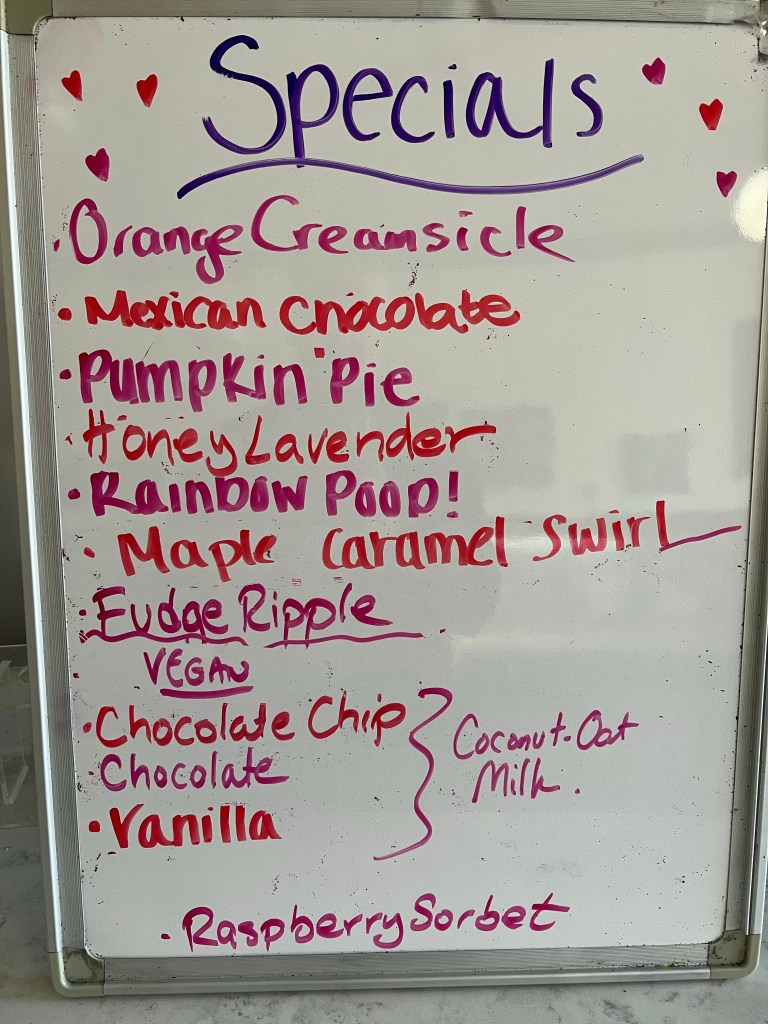 Specials
· Orange Creamsicle
· Mexican Chocolate
· Pumpkin Pie
· Honey Lavender
· Rainbow Poop!
· Maple Caramel Swirl
· Fudge Ripple
VEGAN
· Chocolate Chip
· Chocolate
· Vanilla
Coconut-Oat
Milk.
· Raspberry Sorbet